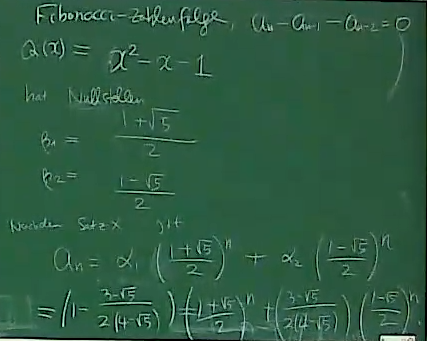 Fibonacci-Zahlenfolge, aₙ - aₙ₋₁ - aₙ₋₂ = 0
Q(x) = x² - x - 1
hat Nullstellen
β₁ = (1+√5)/2
β₂ = (1-√5)/2
Nach dem Satz X gilt
aₙ = α₁ ((1+√5)/2)ⁿ + α₂ ((1-√5)/2)ⁿ
= (1 - (3-√5)/(2(4-√5))) ((1+√5)/2)ⁿ + ((3-√5)/(2(4-√5))) ((1-√5)/2)ⁿ